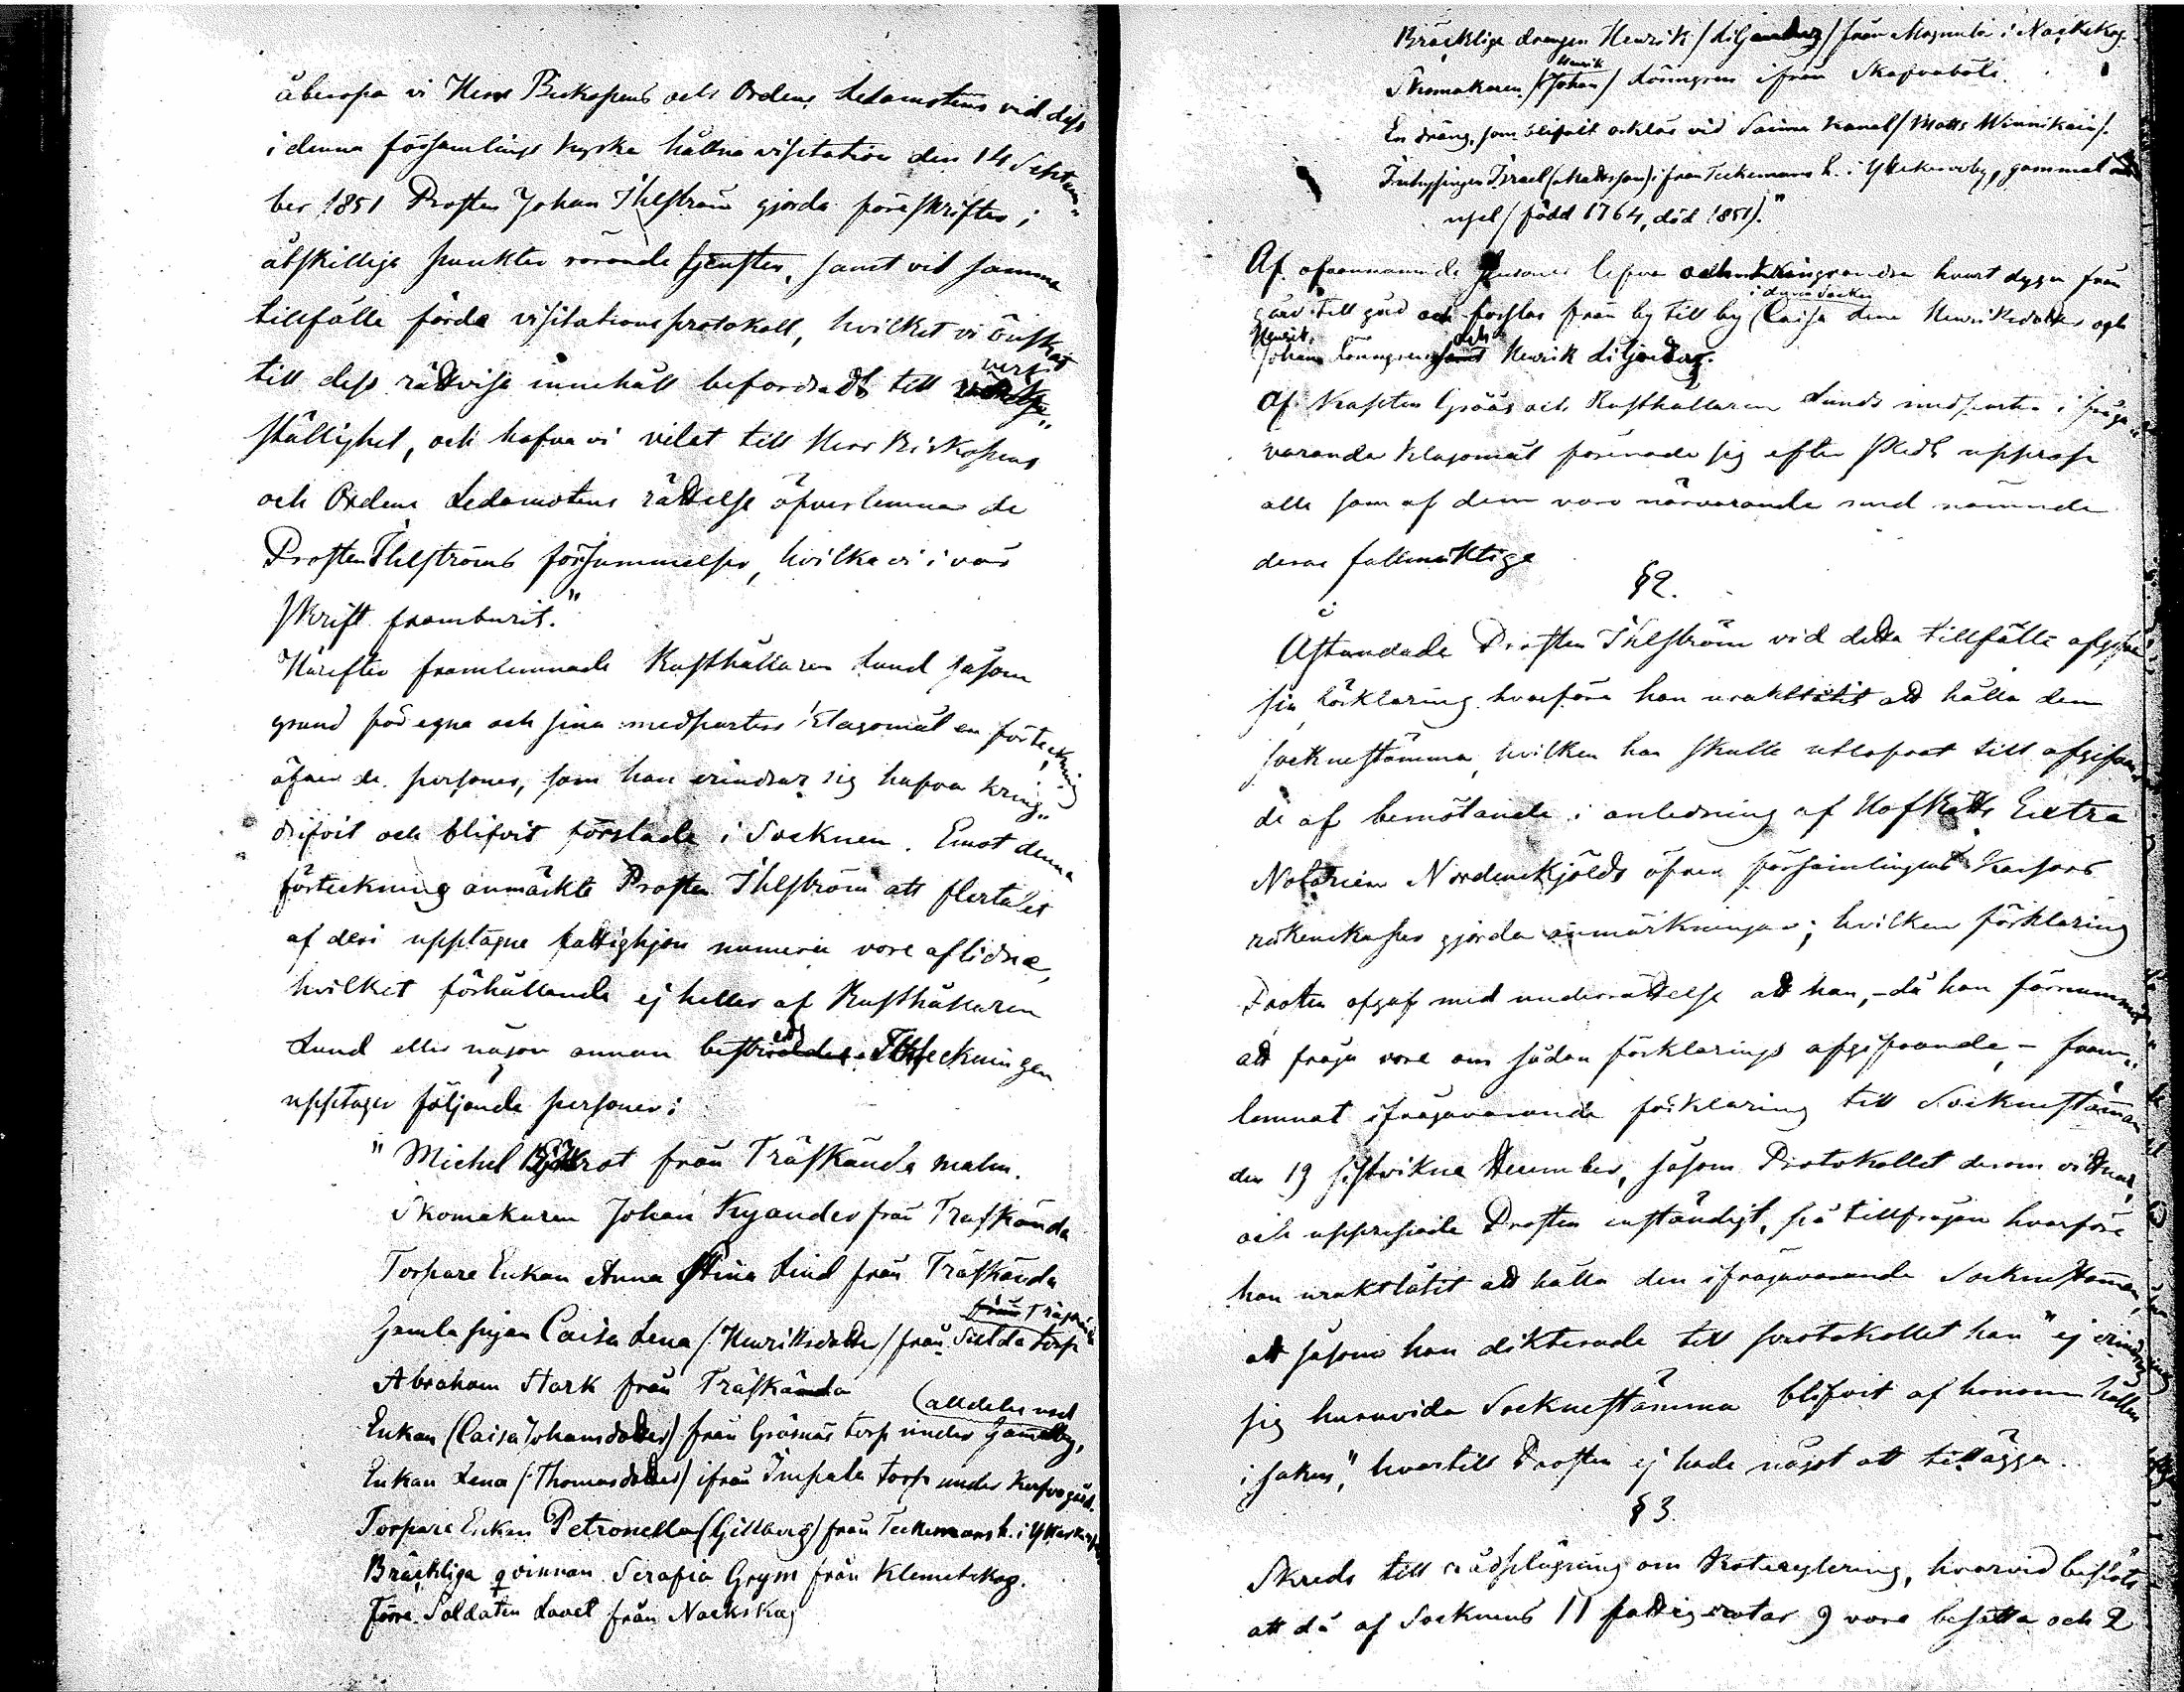 åberopa vi Herr Biskopens och Ordens Ledamotens vid dess
i denna församlings kyrka hållna visitation den 14 Septem-
ber 1851 Prosten Johan Ihlström gjorda föreskrifter i
åtskillige punkter rörande tjensten, samt vid samma
tillfälle förda visitationsprotokoll, hvilket vi önskat
till dess rättvisa innehåll befordradt till verk-
ställighet, och hafva vi velat till Herr Biskopens
och Ordens Ledamotens rättelse öfverlemna de
Prosten Ihlströms försummelser, hvilka vi i vår
skrift framburit."
Härefter framlemnade Rusthållaren Lund såsom
grund för egna och sina medparters klagomål en förteckning
öfver de personer, som han erindrar sig hafva kring-
drifvit och blifvit förslade i Socknen. Emot denna
förteckning anmärkte Prosten Ihlström att flertalet
af deri upptagne fattighjon numera vore aflidne,
hvilket förhållande ej heller af Rusthållaren
Lund eller någon annan bestreds. Förteckningen
upptager följande personer:
"Michel från Träskända malm.
Skomakaren Johan Kyander från Träskända
Torpare Enkan Anna Stina Lind från Träskända
från Träskända
Gamla pigan Caisa Lena (Henriksdotter) från torp
Abraham Stark från Träskända
(alldeles
Enkan (Caisa Johansdotter) från Gräsnäs torp under Gammelby,
Enkan Lena (Thomasdotter) ifrån Impala torp under
Torpare Enkan Petronella (Gillberg) från Teckemans h. i
Bräckliga qvinnan Serafia Grym från Klemetskog.
Förre Soldaten Lavel från Nackskog
Bräcklige drängen Henrik (Liljendag) från i Nackskog.
Henrik
Skomakaren (Johan) Lönngren ifrån Skafvaböle.
En dräng, som blifvit ocklös vid Saima Kanal (Matts Minnikain).
Inhysingen Israel (Mattsson) ifrån Teckemans h. i, gammal
usel (född 1764, död 1851)."
Af ofvannämnde personer lefva och kringvandra hvart dygn från
i denna Socken
gård till gård och förslas från by till by Caisa Lena Henriksdotter och
Henrik och
Johan Lönngren samt Henrik Liljendag.
Af Kapten Gröös och Rusthållaren Lunds medparter i fråga-
varande klagomål förenade sig efter skedt upprop
alle som af dem voro närvarande med nämnde
deras fullmäktige
§2.
Åstundade Prosten Ihlström vid detta tillfälle afgifva
sin förklaring hvarföre han uraktlåtit att hålla den
sockenstämma, hvilken han skulle utlofvat till afgifvan-
de af bemötande i anledning af HofRätts Extra
Notarien Nordenskjölds öfver församlingens Kassors
räkenskaper gjorda anmärkningar; hvilken förklaring
Prosten afgaf med underrättelse att han, - då han förnummit
att fråga vore om sådan förklarings afgifvande, - fram-
lemnat ifrågavarande förklaring till Sockenstämman
den 19 sistvikne December, såsom Protokollet derom vittnar,
och upprepade Prosten enständigt, på tillfrågan hvarföre
han uraktlåtit att hålla den ifrågavarande Sockenstämman,
att såsom han dikterade till protokollet han "ej erindrar
sig huruvida Sockenstämma blifvit af honom hållen
i saken," hvartill Prosten ej hade något att tillägga.
§3.
Skreds till rådplägning om Rotereglering, hvarvid befiöts
att då af Socknens 11 fattigrotar 9 vore besatta och 2